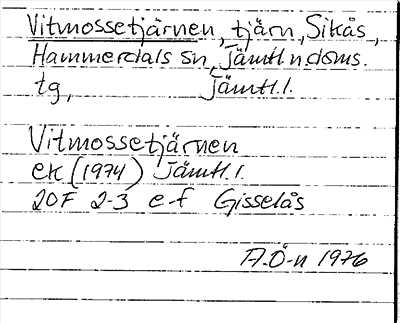 Vitmossetjärnen, tjärn, Sikås,
Hammerdals sn, Jämtl n doms.
tg, Jämtl. l.
Vitmossetjärnen
ek (1974) Jämtl. l.
20F 2-3 e-f Gisselås
A.Ö-n 1976